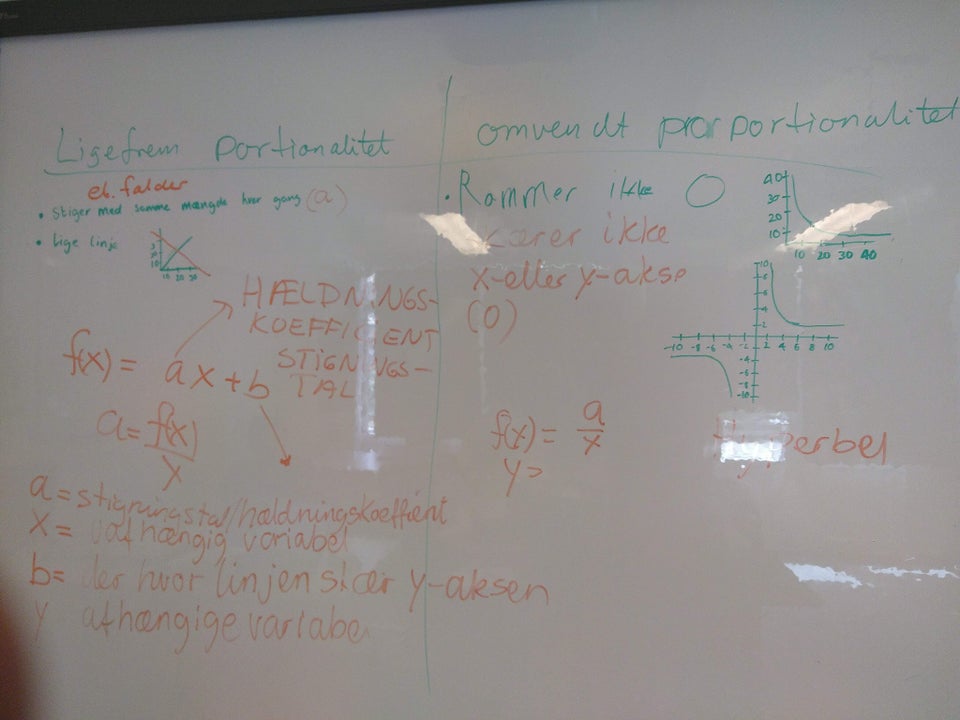 Ligefrem Portionalitet
el. falder
• Stiger med samme mængde hver gang (a)
• Lige linje
10 20 30
HÆLDNINGS-
KOEFFICIENT
STIGNINGS-
TAL
f(x) = ax + b
a = f(x)
x
a = stigningstal/hældningskoeffient
x = uafhængig variabel
b = der hvor linjen skær y-aksen
y afhængige variabel
omvendt proportionalitet
• Rammer ikke 0
skærer ikke
x-eller y-akse
(0)
40
30
20
10
10 20 30 40
10
8
6
4
2
-10 -8 -6 -4 -2 2 4 6 8 10
-4
-6
-8
-10
f(x) = a
x
y =
Hyperbel